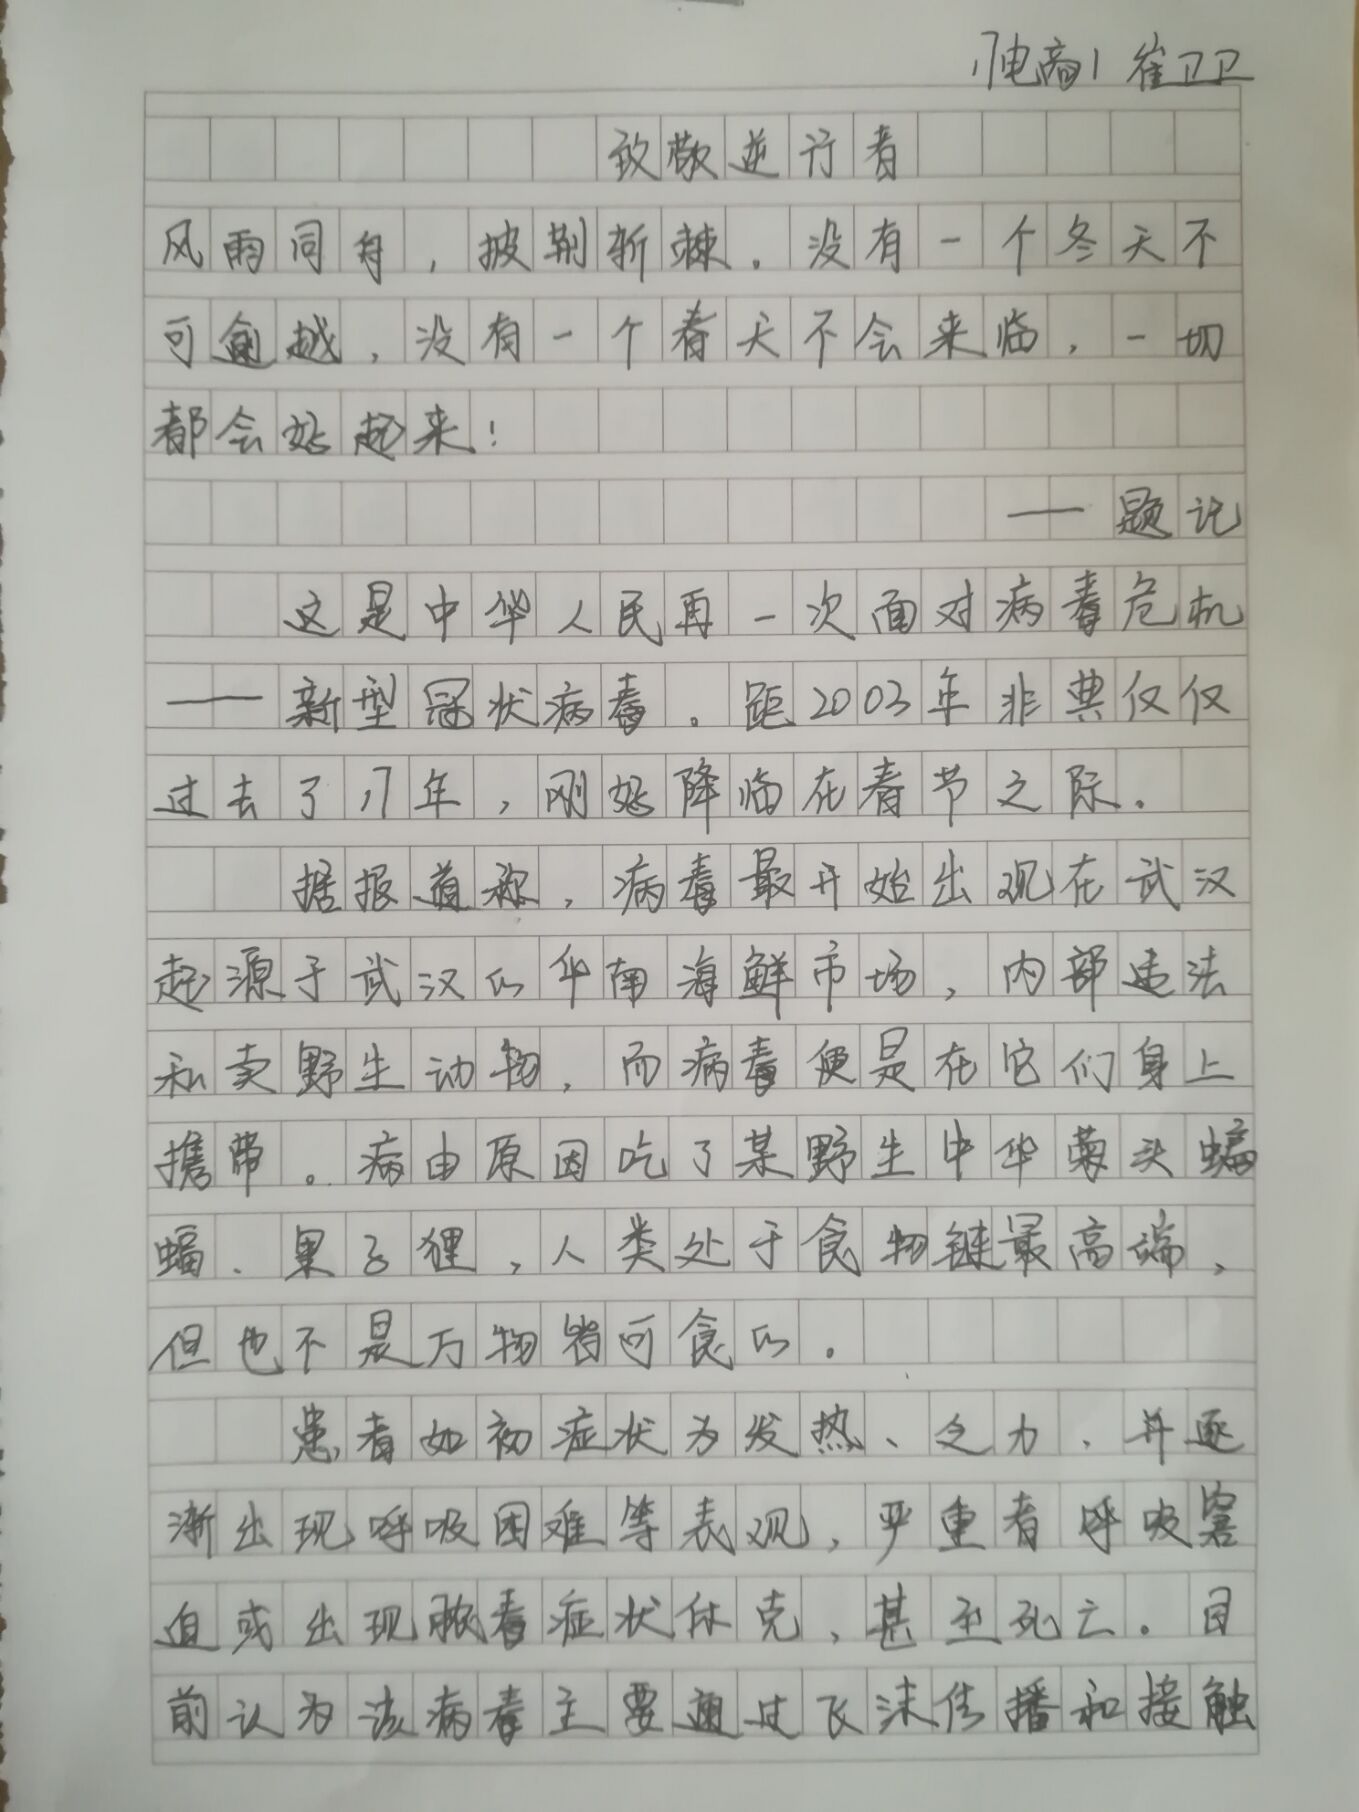 17电商1 崔卫卫
致敬逆行者
风雨同舟，披荆斩棘。没有一个冬天不
可逾越，没有一个春天不会来临，一切
都会好起来！
——题记
这是中华人民再一次面对病毒危机
——新型冠状病毒。距2003年非典仅仅
过去了17年，刚好降临在春节之际。
据报道称，病毒最开始出现在武汉
起源于武汉的华南海鲜市场，内部违法
和卖野生动物，而病毒便是在它们身上
携带。病由原因吃了某野生中华菊头蝙
蝠、果子狸，人类处于食物链最高端，
但也不是万物皆可食的。
患者如初症状为发热、乏力，并逐
渐出现呼吸困难等表现，严重者呼吸窘
迫或出现脓毒症状休克，甚至死亡。目
前认为该病毒主要通过飞沫传播和接触